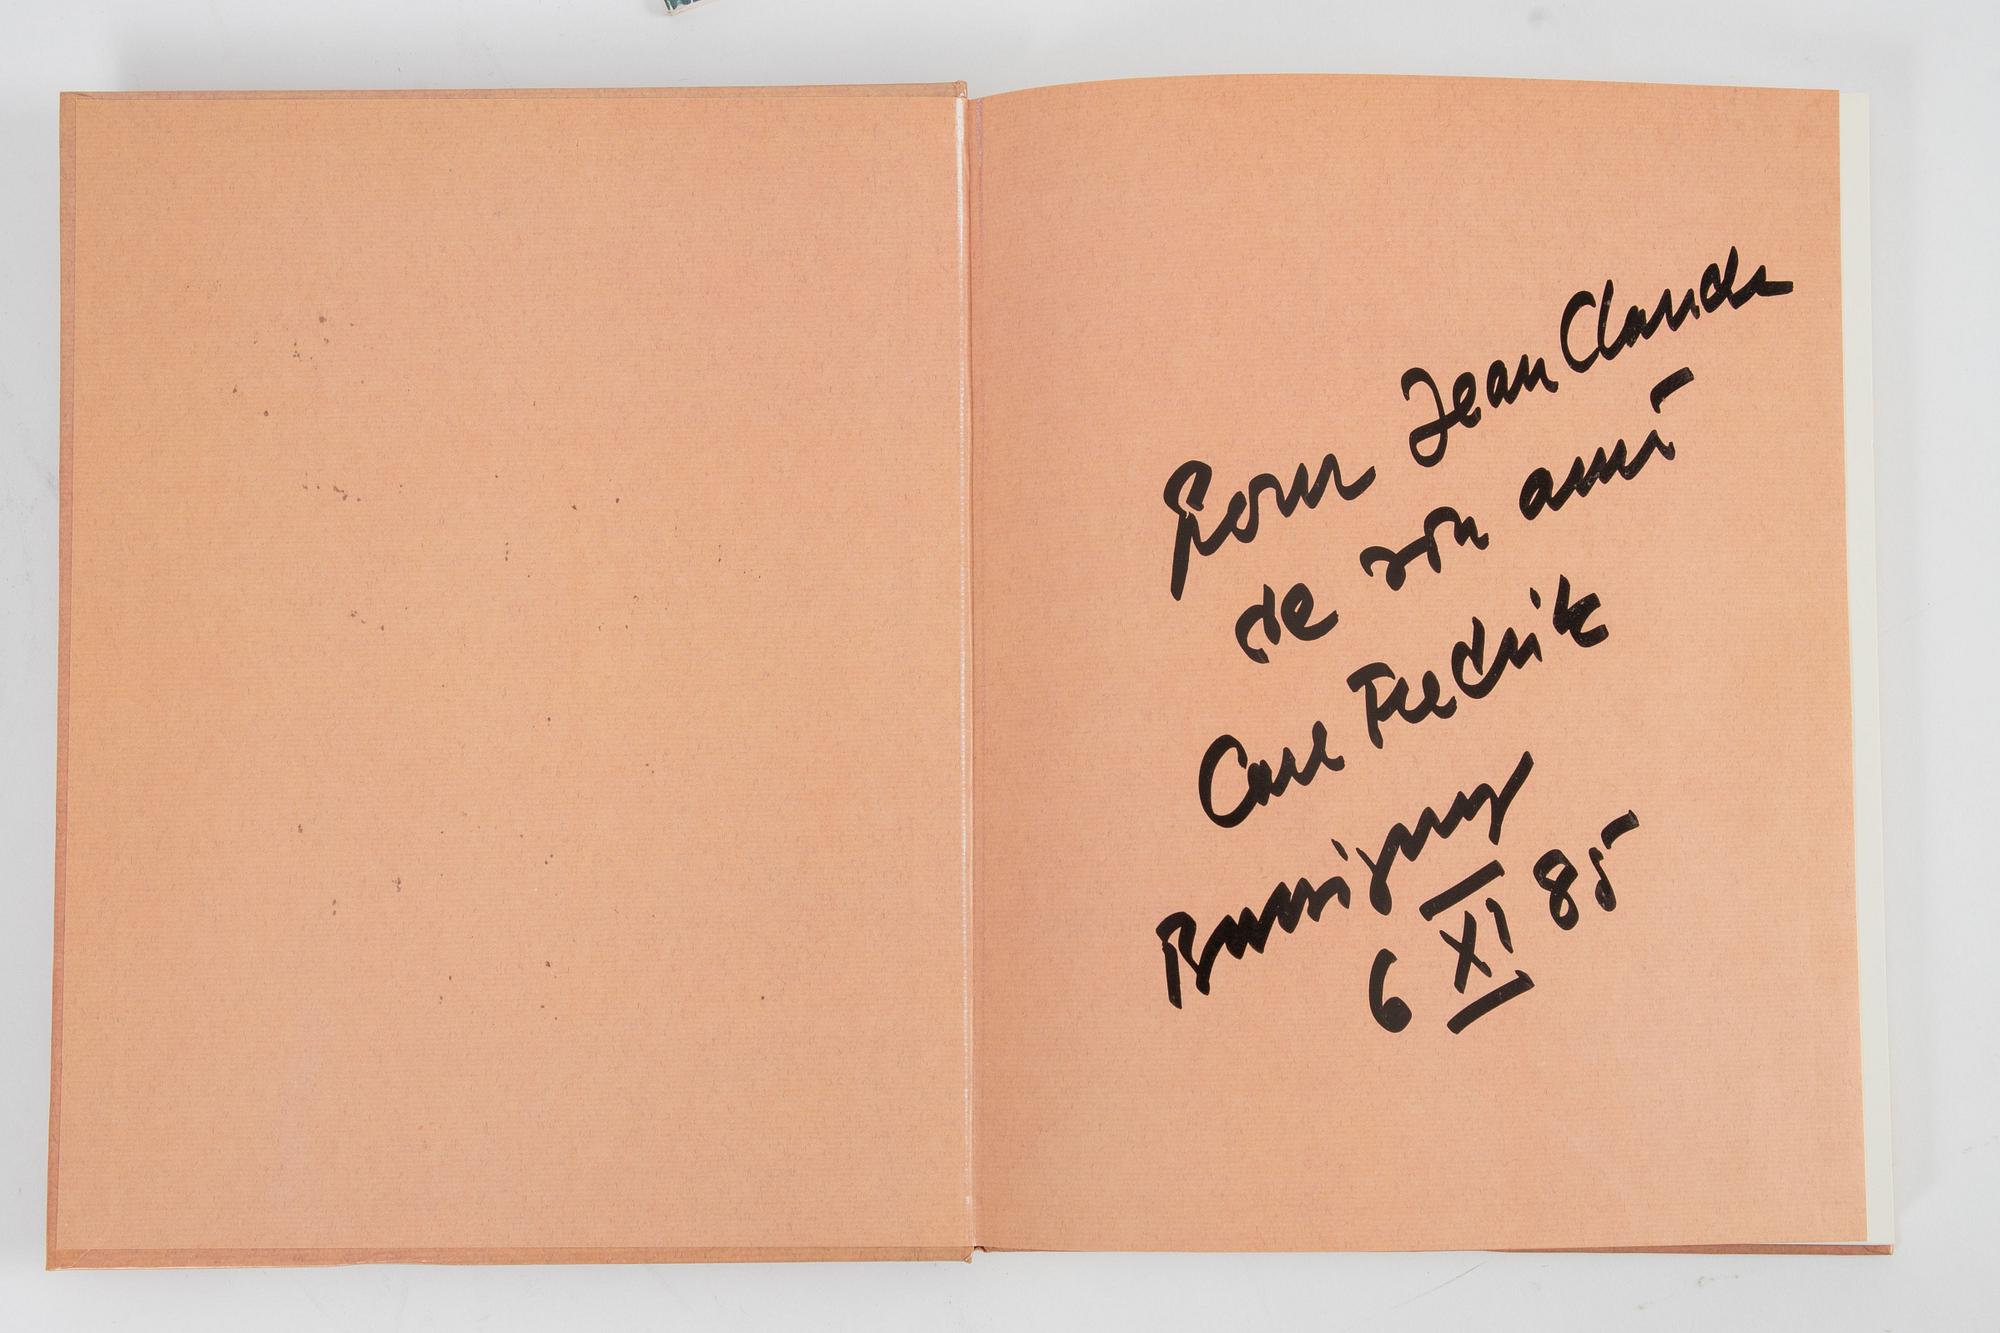 Pour Jean Claude
de son ami
Carl Fredrik
6 XI 85